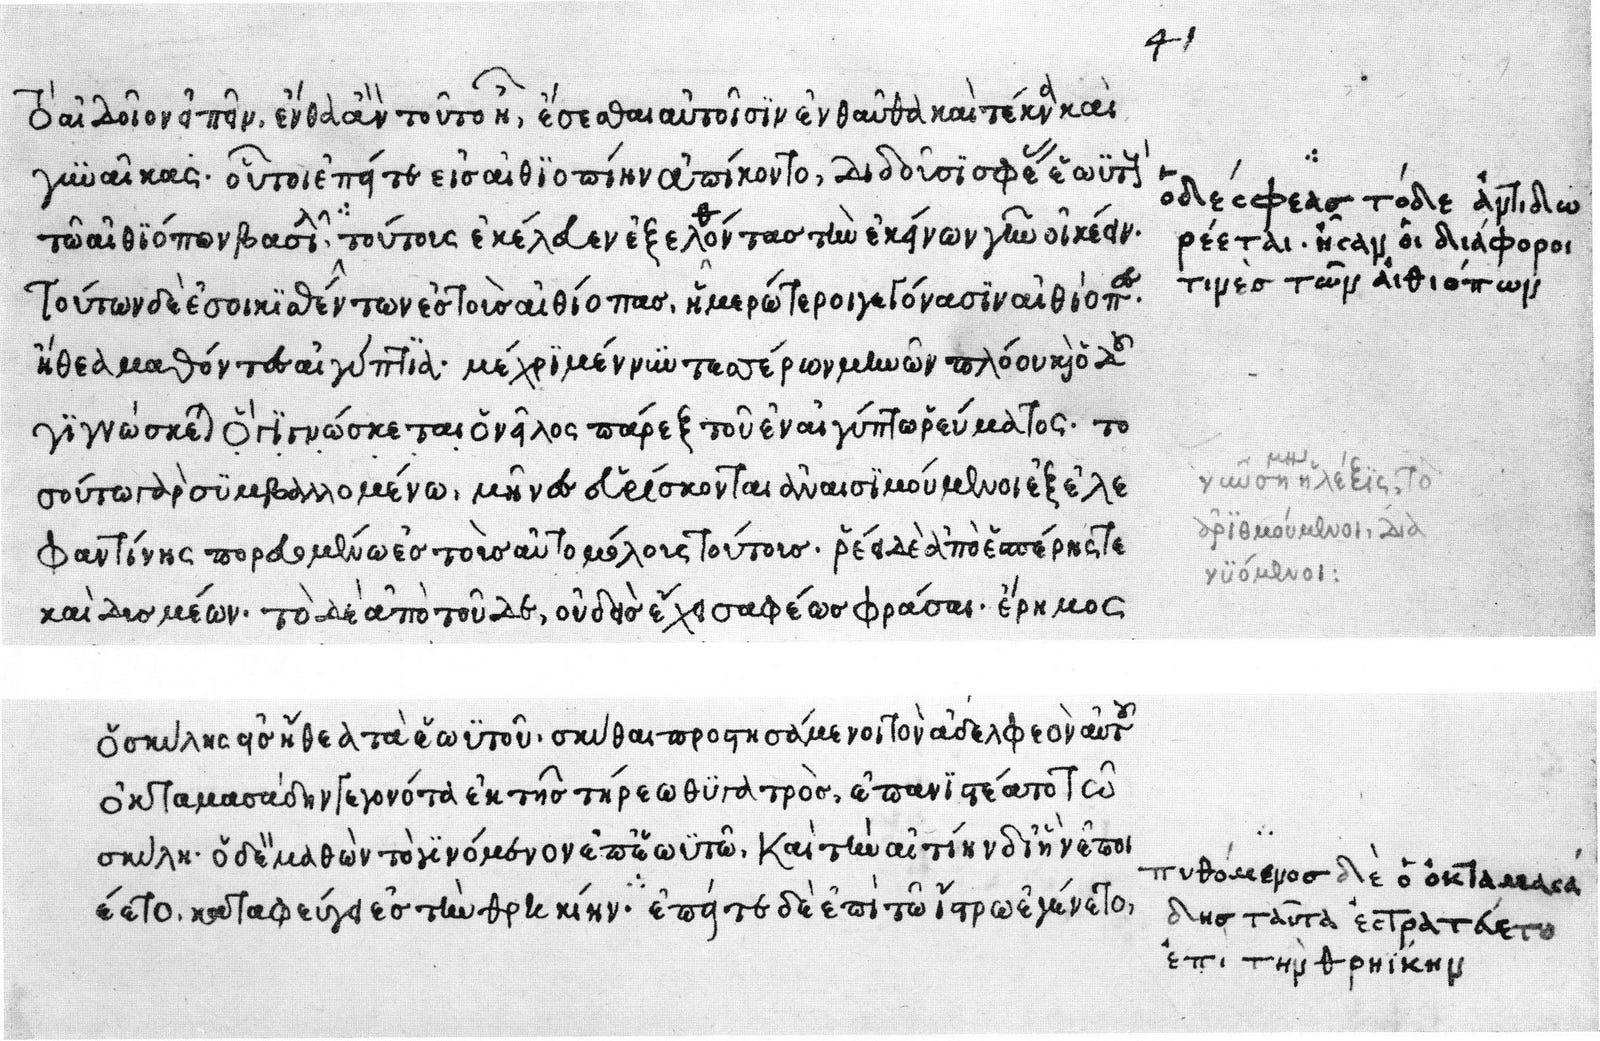 41
τὸ αἰδοῖον εἰπεῖν, ἔνθα ἂν τοῦτο ᾖ, ἔσεσθαι αὐτοῖσιν ἐνθαῦθα καὶ τέκνα καὶ
γυναῖκας. οὗτοι ἐπείτε εἰς αἰθιοπίην ἀπίκοντο, διδοῦσι σφέας ἑωυτοὺς
τῶ αἰθιόπων βασιλεῖ. τούτοις ἐκέλευεν ἐξελόντας τὴν ἐκείνων γῆν οἰκέειν.
Τούτων δὲ ἐσοικισθέντων ἐς τοὺς αἰθίοπας, ἡμερώτεροι γεγόνασιν αἰθίοπες.
ἤθεα μαθόντες αἰγύπτια. μέχρι μέν νυν τεσσέρων μηνῶν πλόου καὶ ὁδοῦ
γιγνώσκεται ὁ γιγνώσκεται ὁ νεῖλος πάρεξ τοῦ ἐν αἰγύπτω ῥεύματος. το
σούτω γὰρ συμβαλλομένω, μῆνες εὑρίσκονται ἀναισιμούμενοι ἐξ ἐλε
φαντίνης πορευομένω ἐς τοὺς αὐτομόλους τούτους. ῥέει δὲ ἀπὸ ἑσπέρης τε
καὶ δυσμέων. τὸ δὲ ἀπὸ τοῦδε, οὐδεὶς ἔχει σαφέως φράσαι. ἔρημος
ὁ δέ σφεας τόδε ἀντιδω
ρέεται. ἦσαν οἱ διάφοροι
τινὲς τῶν αἰθιόπων
ἀριθμούμενοι, δια
νυόμενοι:
ὁ σκύλης εἰς ἤθεα τὰ ἑωυτοῦ. σκύθαι προστησάμενοι τὸν ἀδελφεὸν αὐτοῦ
ὀκταμασάδην γεγονότα ἐκ τῆς τήρεω θυγατρὸς, ἐπανιστέατο τῶ
σκύλη. ὁ δὲ μαθὼν τὸ γινόμενον ἐπ' ἑωυτῶ, καὶ τὴν αἰτίην δι' ἣν ἐποι
έετο, καταφεύγει ἐς τὴν θρηικίην. ἐπείτε δὲ ἐπὶ τῶ ἴστρω ἐγένετο,
πυθόμενος δὲ ὁ ὀκταμασά
δης ταῦτα ἐστρατεύετο
ἐπὶ τὴν θρηίκην